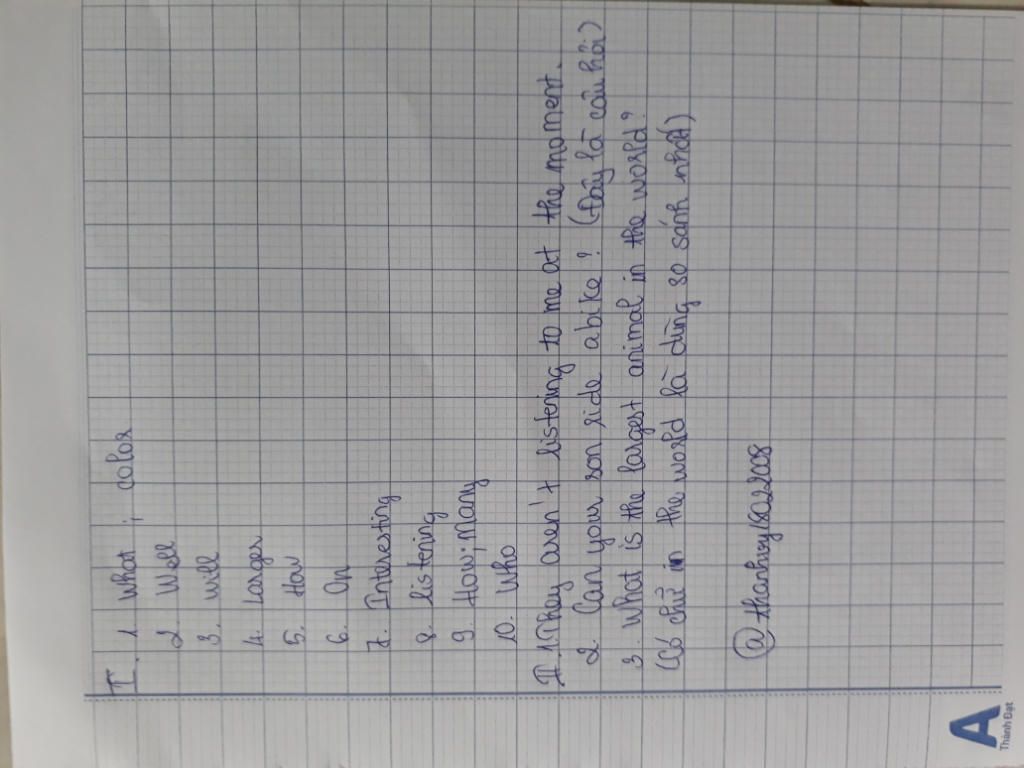 I. 1. What ; color
2. Well
3. will
4. Larger
5. How
6. On
7. Interesting
8. listening
9. How; Many
10. Who
II. 1. They aren't listening to me at the moment.
2. Can your son ride a bike? (Đây là câu hỏi)
3. What is the largest animal in the world?
(Có chữ in the world là dùng so sánh nhất)
@thanhuy18022008
A
Thành Đạt